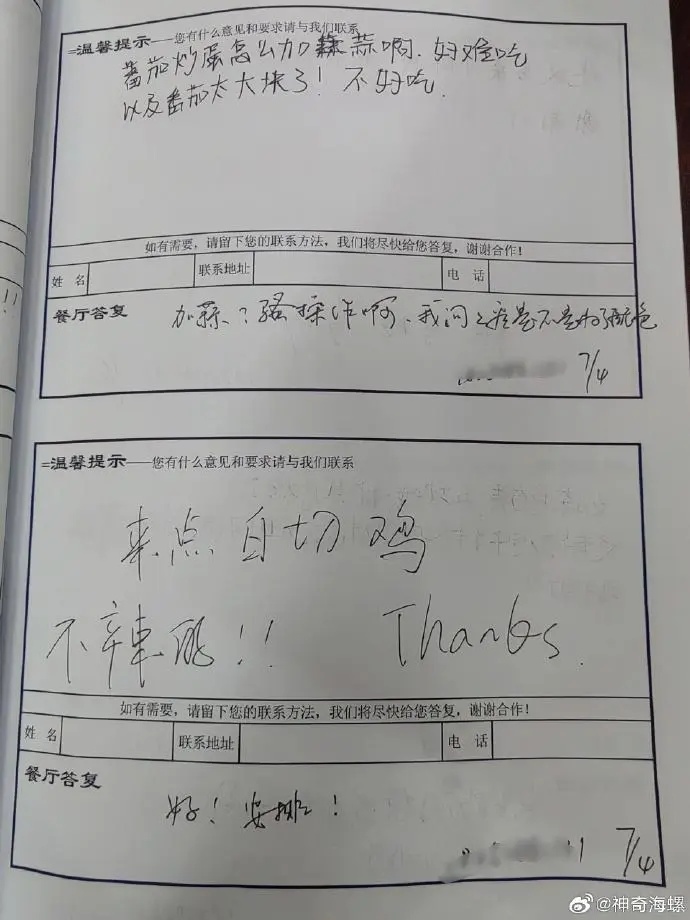 =温馨提示——您有什么意见和要求请与我们联系
蕃茄炒蛋怎么加蒜啊.好难吃
以及番茄太大块了！不好吃.
如有需要，请留下您的联系方法，我们将尽快给您答复，谢谢合作！
姓 名 联系地址 电 话
餐厅答复
加蒜？骚操作啊、我问之是不是为了配色
7/4
=温馨提示——您有什么意见和要求请与我们联系
来点白切鸡
不辣的!! Thanks.
如有需要，请留下您的联系方法，我们将尽快给您答复，谢谢合作！
姓 名 联系地址 电 话
餐厅答复
好！安排！
7/4
@神奇海螺